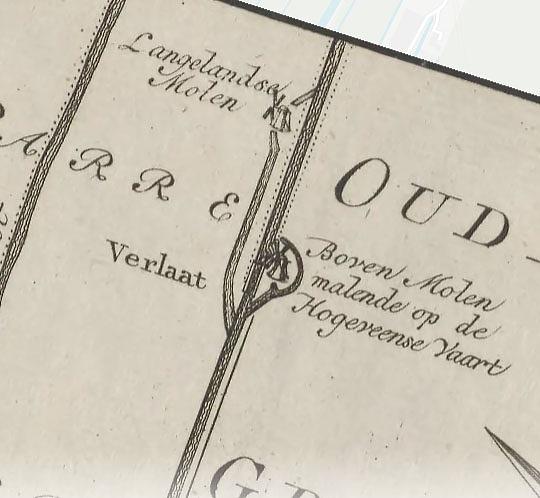 Langelandse
Molen
A R R E
OUD
Verlaat
Boven Molen
malende op de
Hogeveense Vaart
G